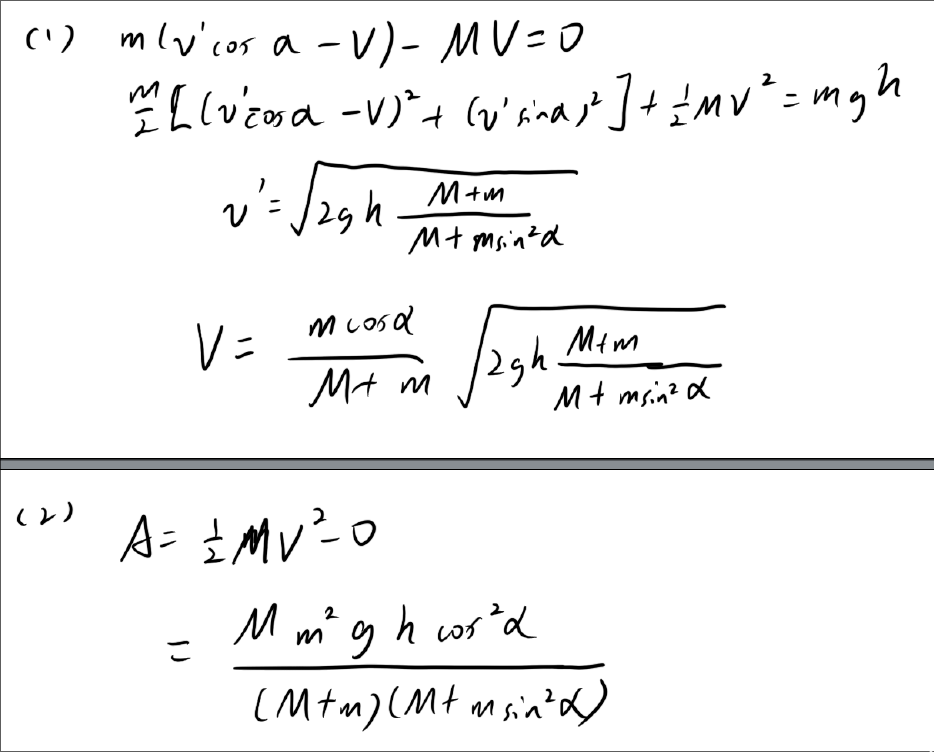 (1) m(v'cos α - V) - MV = 0
m/2 [(v'cosα - V)² + (v'sinα)²] + 1/2 MV² = mgh
v' = √(2gh (M+m)/(M+msin²α))
V = (m cosα)/(M+m) √(2gh (M+m)/(M+msin²α))
(2) A = 1/2 MV² - 0
= (M m² g h cos²α)/((M+m)(M+msin²α))